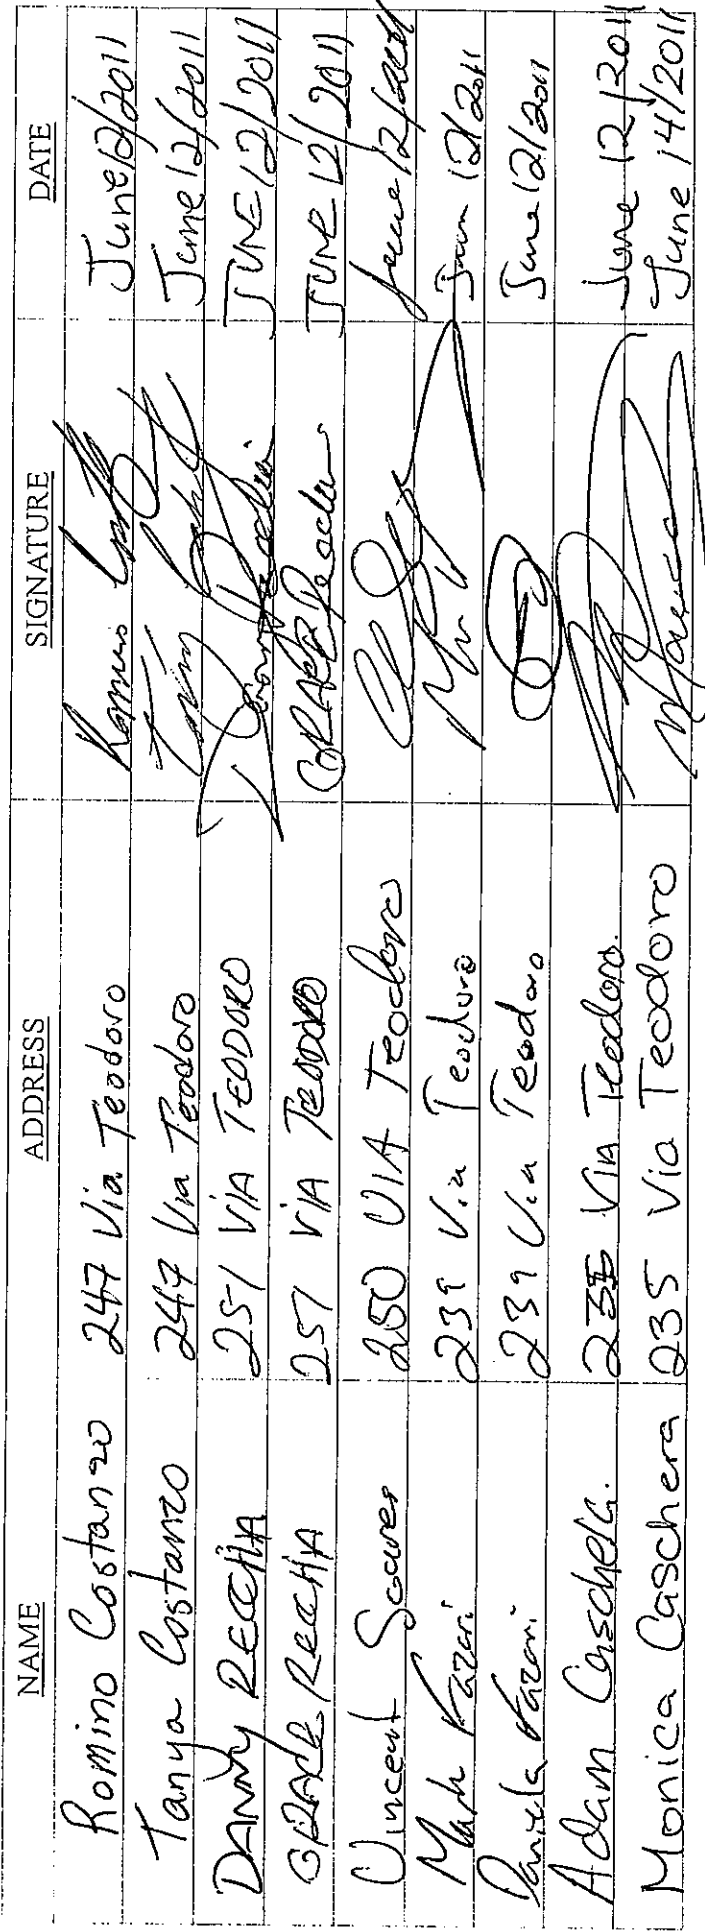 NAME ADDRESS SIGNATURE DATE
Romino Costanzo 247 Via Teodoro June 12/2011
Tanya Costanzo 247 Via Teodoro June 12/2011
DANNY RECCHIA 251 VIA TEODORO JUNE 12/2011
GRACE RECCHIA 251 VIA TEODORO GRACE Recchia JUNE 12/2011
Vincent Soares 250 VIA Teodoro June 12/2011
Mark 239 Via Teodoro June 12/2011
Daniela 239 Via Teodoro June 12/2011
Adam Caschera. 235 VIA Teodoro. June 12/2011
Monica Caschera 235 Via Teodoro June 14/2011